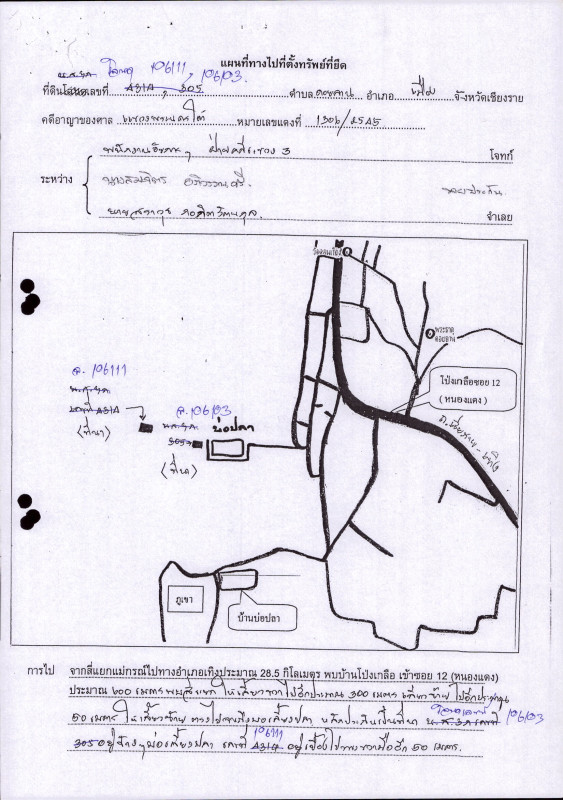 แผนที่ทางไปที่ตั้งทรัพย์ที่ยึด
โฉนด 106111, 106103
ที่ดินโฉนดเลขที่ 431A, 305 ตำบล ดอยลาน อำเภอ เมือง จังหวัดเชียงราย
คดีอาญาของศาล แขวงพระนครใต้ หมายเลขแดงที่ 1306/2545
พนักงานอัยการ ฝ่ายคดีแขวง 3 โจทก์
ระหว่าง นางสมจิตร
จำเลย
พระธาตุ
ดอยลาน
โป่งเกลือซอย 12
(หนองแดง)
ฉ. 106111
น.ส.3ก.
เลขที่ 431A
(ที่นา)
ฉ. 106103
น.ส.3ก.
305
(ที่นา)
บ่อปลา
ภูเขา
บ้านบ่อปลา
การไป จากสี่แยกแม่กรณ์ไปทางอำเภอเทิงประมาณ 28.5 กิโลเมตร พบบ้านโป่งเกลือ เข้าซอย 12 (หนองแดง)
ประมาณ 600 เมตร พบสี่แยก ให้เลี้ยวขวาไปอีกประมาณ 300 เมตร เลี้ยวซ้ายไปอีกประมาณ
50 เมตร ให้เลี้ยวซ้าย ทางไปจนถึงบ่อเลี้ยงปลา หลักประกันเป็นที่นา 106103
305 อยู่ข้างๆบ่อเลี้ยงปลา เลขที่ 431A 106111 อยู่เยื้องไปทางขวามืออีก 50 เมตร.